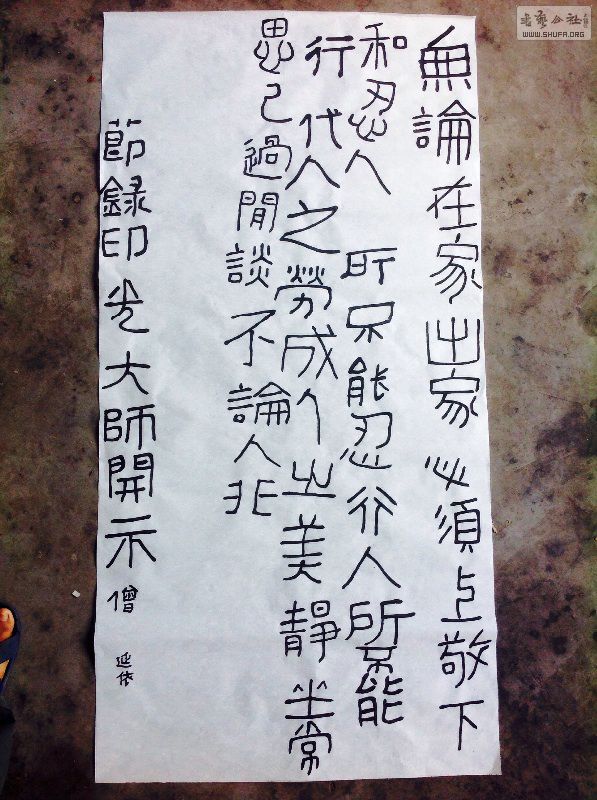 無論在家出家必須上敬下
和忍人所不能忍行人所不能
行代人之勞成人之美靜坐常
思己過閒談不論人非
節録印光大師開示僧延依
書藝公社
WWW.SHUFA.ORG